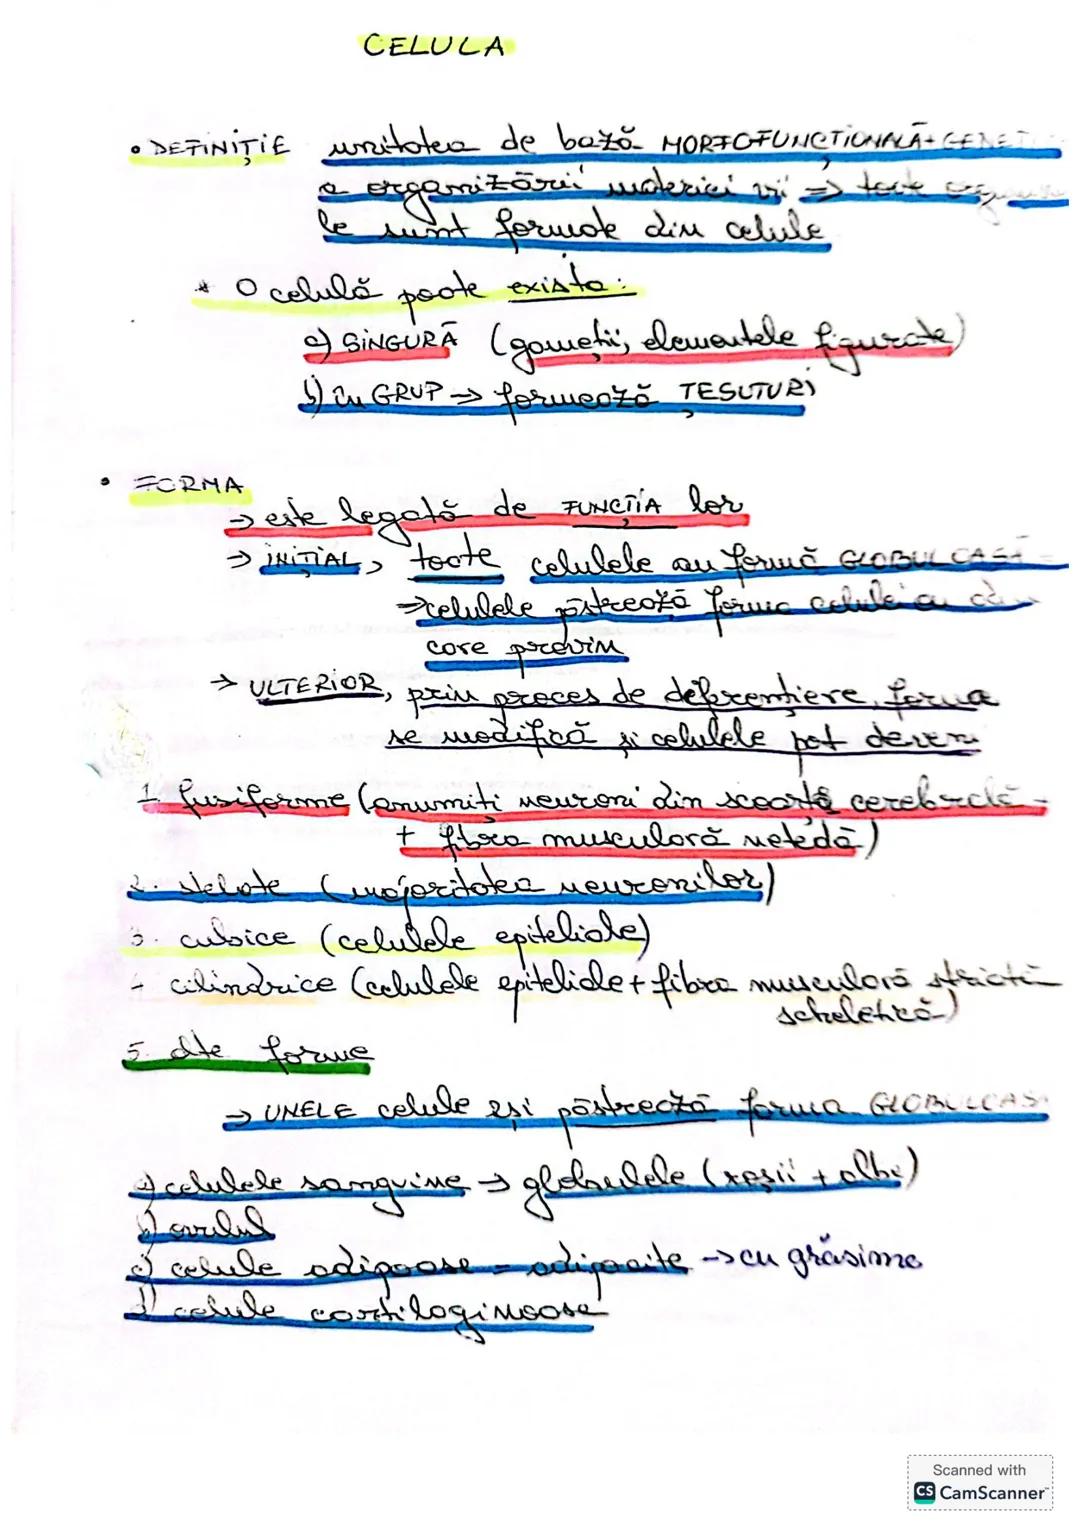 CELULA
• DEFINIȚIE unitatea de bază MORFOFUNCȚIONALĂ +
a organizării materiei vii => toate
le sunt formate din celule
* O celulă poate exista:
a) SINGURĂ (gameții, elementele figurate)
b) în GRUP → formează ȚESUTURI
• FORMA
→ este legată de FUNCȚIA lor
→ INIȚIAL, toate celulele au formă GLOBULOASĂ
→ celulele păstrează forma celulei a
care provin
→ ULTERIOR, prin proces de deferențiere, forma
se modifică și celulele pot deveni
1. fusiforme (anumiți neuroni din scoarța cerebrală
+ fibra musculară netedă)
2. stelate (majoritatea neuronilor)
3. cubice (celulele epiteliale)
4 cilindrice (celulele epiteliale + fibra musculară striată
scheletică)
5. alte forme
→ UNELE celule își păstrează forma GLOBULOAS
a) celulele sanguine → globulele (roșii + albe)
b) ovulul
c) celule adipoase = adipocite → cu grăsime
d) celule cartilaginoase
Scanned with
CS CamScanner